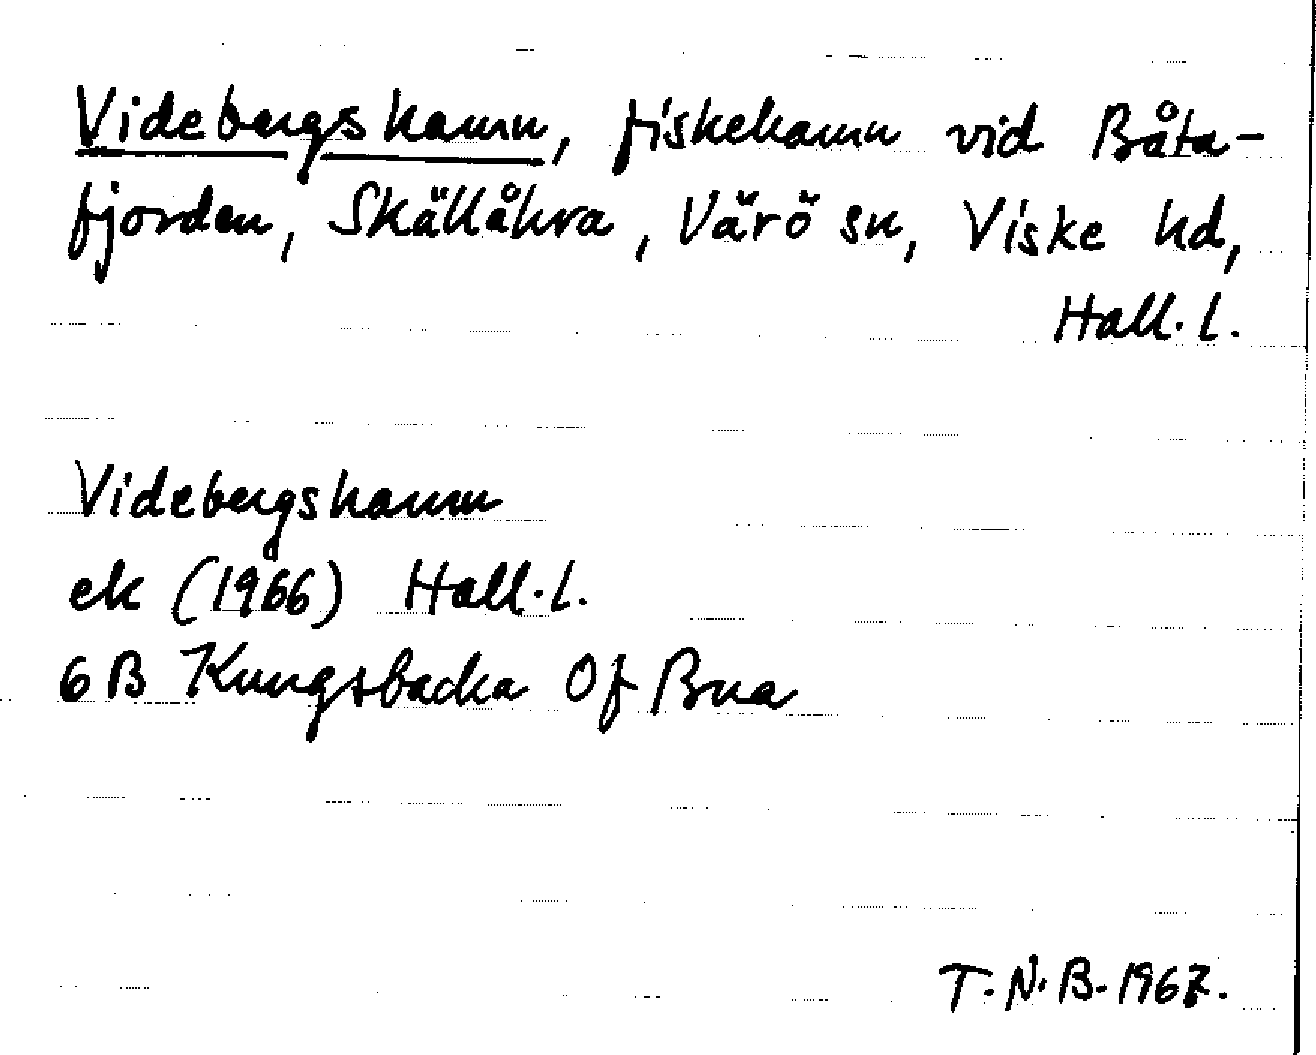 Videbergshamn, fiskehamn vid Båta-
fjorden, Skällåkra, Värö sn, Viske hd,
Hall. l.
Videbergshamn
ek (1966) Hall. l.
6B Kungsbacka 0f Bua
T. N. B. 1967.